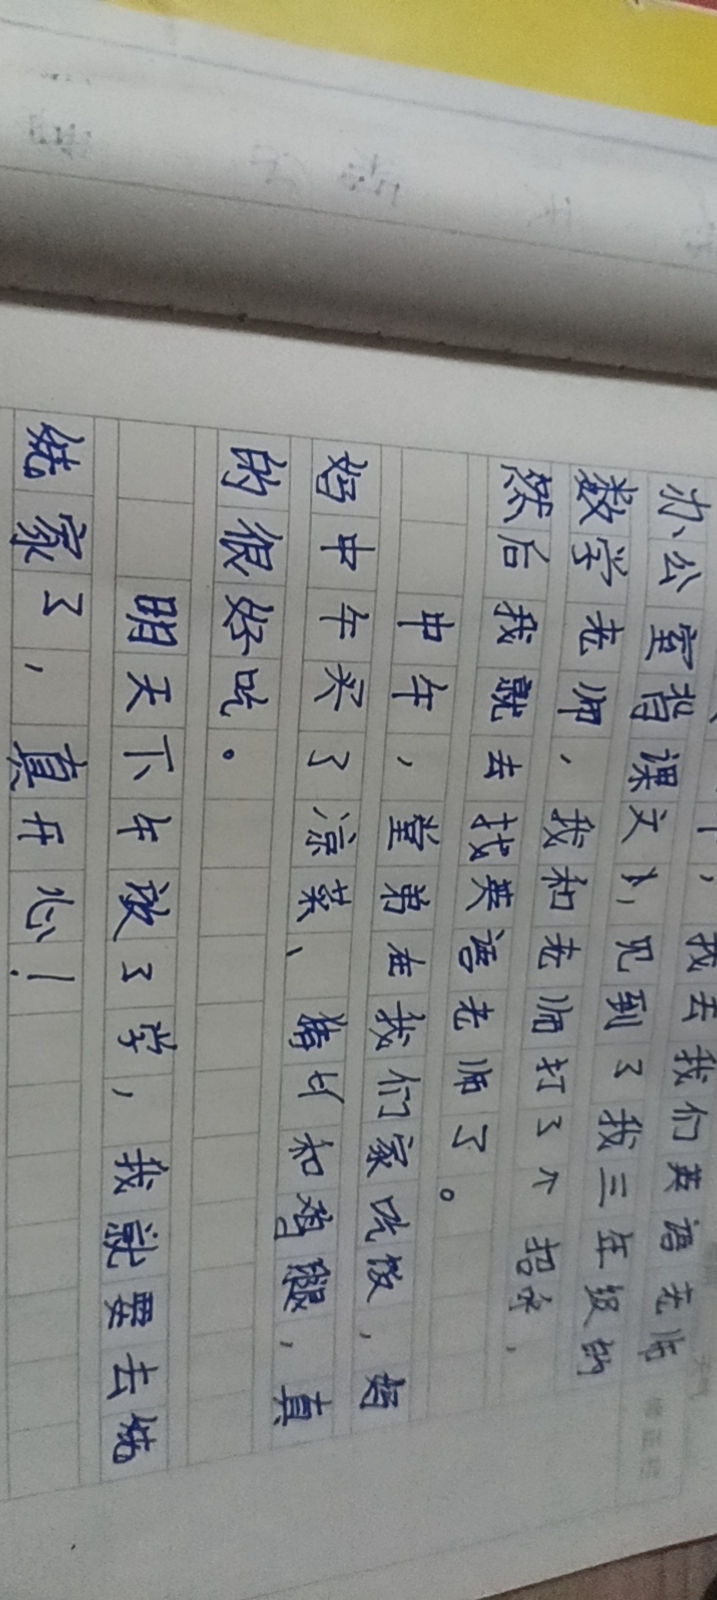 ，我去我们英语老师
办公室背课文时，见到了我三年级的
数学老师，我和老师打了个招呼，
然后我就去找英语老师了。
中午，堂弟在我们家吃饭，妈
妈中午买了凉菜、猪和鸡腿，真
的很好吃。
明天下午放了学，我就要去姥
姥家了，真开心！